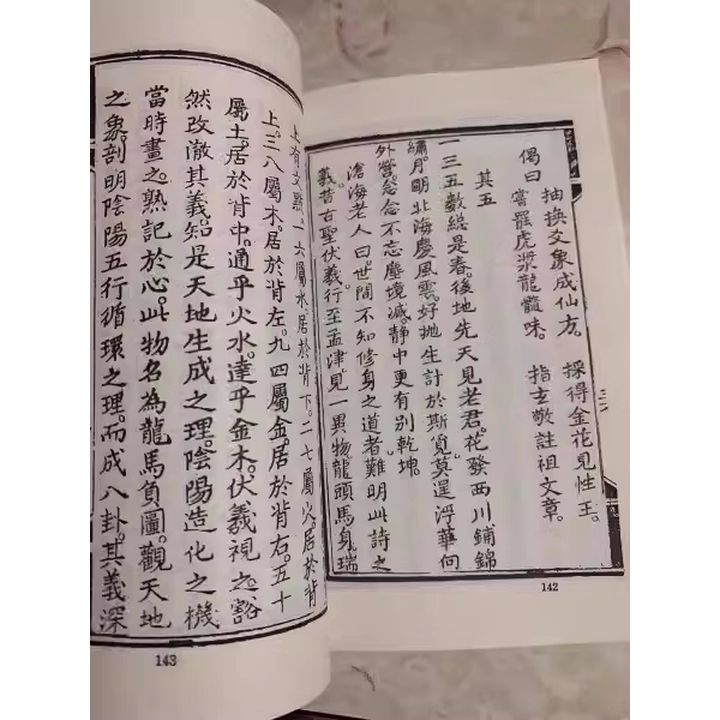 偈曰　抽換爻象成仙方。　採得金花見性王。
嘗罷虎漿龍髓味。　指玄敬註祖文章。
其五
一三五數總是春。後地先天見老君。花發西川鋪錦
繡。月明北海慶風雲。好拋生計於斯覓。莫逞浮華向
外營。念念不忘塵境滅。靜中更有別乾坤。
滄海老人曰。世間不知修身之道者。難明此詩之
義。昔古聖伏羲行至孟津。見一異物。龍頭馬身。瑞
142
上有文點。一六屬水。居於背下。二七屬火。居於背
上。三八屬木。居於背左。九四屬金。居於背右。五十
屬土。居於背中。通乎火水。達乎金木。伏羲視之。豁
然改澈其義。知是天地生成之理。陰陽造化之機
當時畫之。熟記於心。此物名為龍馬負圖。觀天地
之象。剖明陰陽五行循環之理。而成八卦。其義深
143